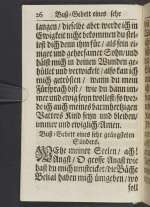 26 Buß-Gebett eines sehr
langen / dieselbe aber werde ich in
Ewigkeit nicht bekommen du strie-
dich dein ihm für / als sein ei-
niger und gehorsamer Sohn / und
hülst mich in deinen Wunden ge-
hüllet und verdeckt / also kan ich
mich getrösten / wann du mein
Fürsprach bist / wie du dann im-
mer und ewig seyn wollest so wer-
de ich auch meines barmhertzigen
Vatters Kind seyn und bleiben /
immer und ewiglich / Amen.
Buß-Gebett eines sehr geängsteten
Sünders.
WEhe meiner Seelen / ach!
Angst / O grosse Angst wie
hast du mich umstricket / die Bäche
Belial haben mich umgeben / wo
soll